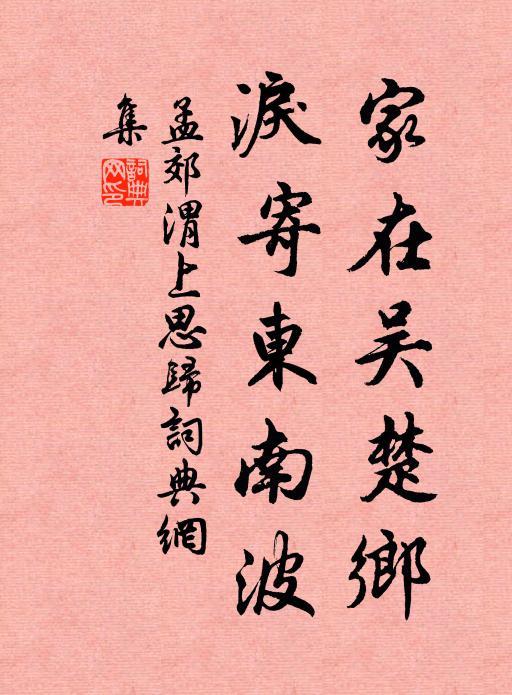 家在吴楚鄉
淚寄東南波
孟郊渭上思歸詞典網
集
詞典
网印